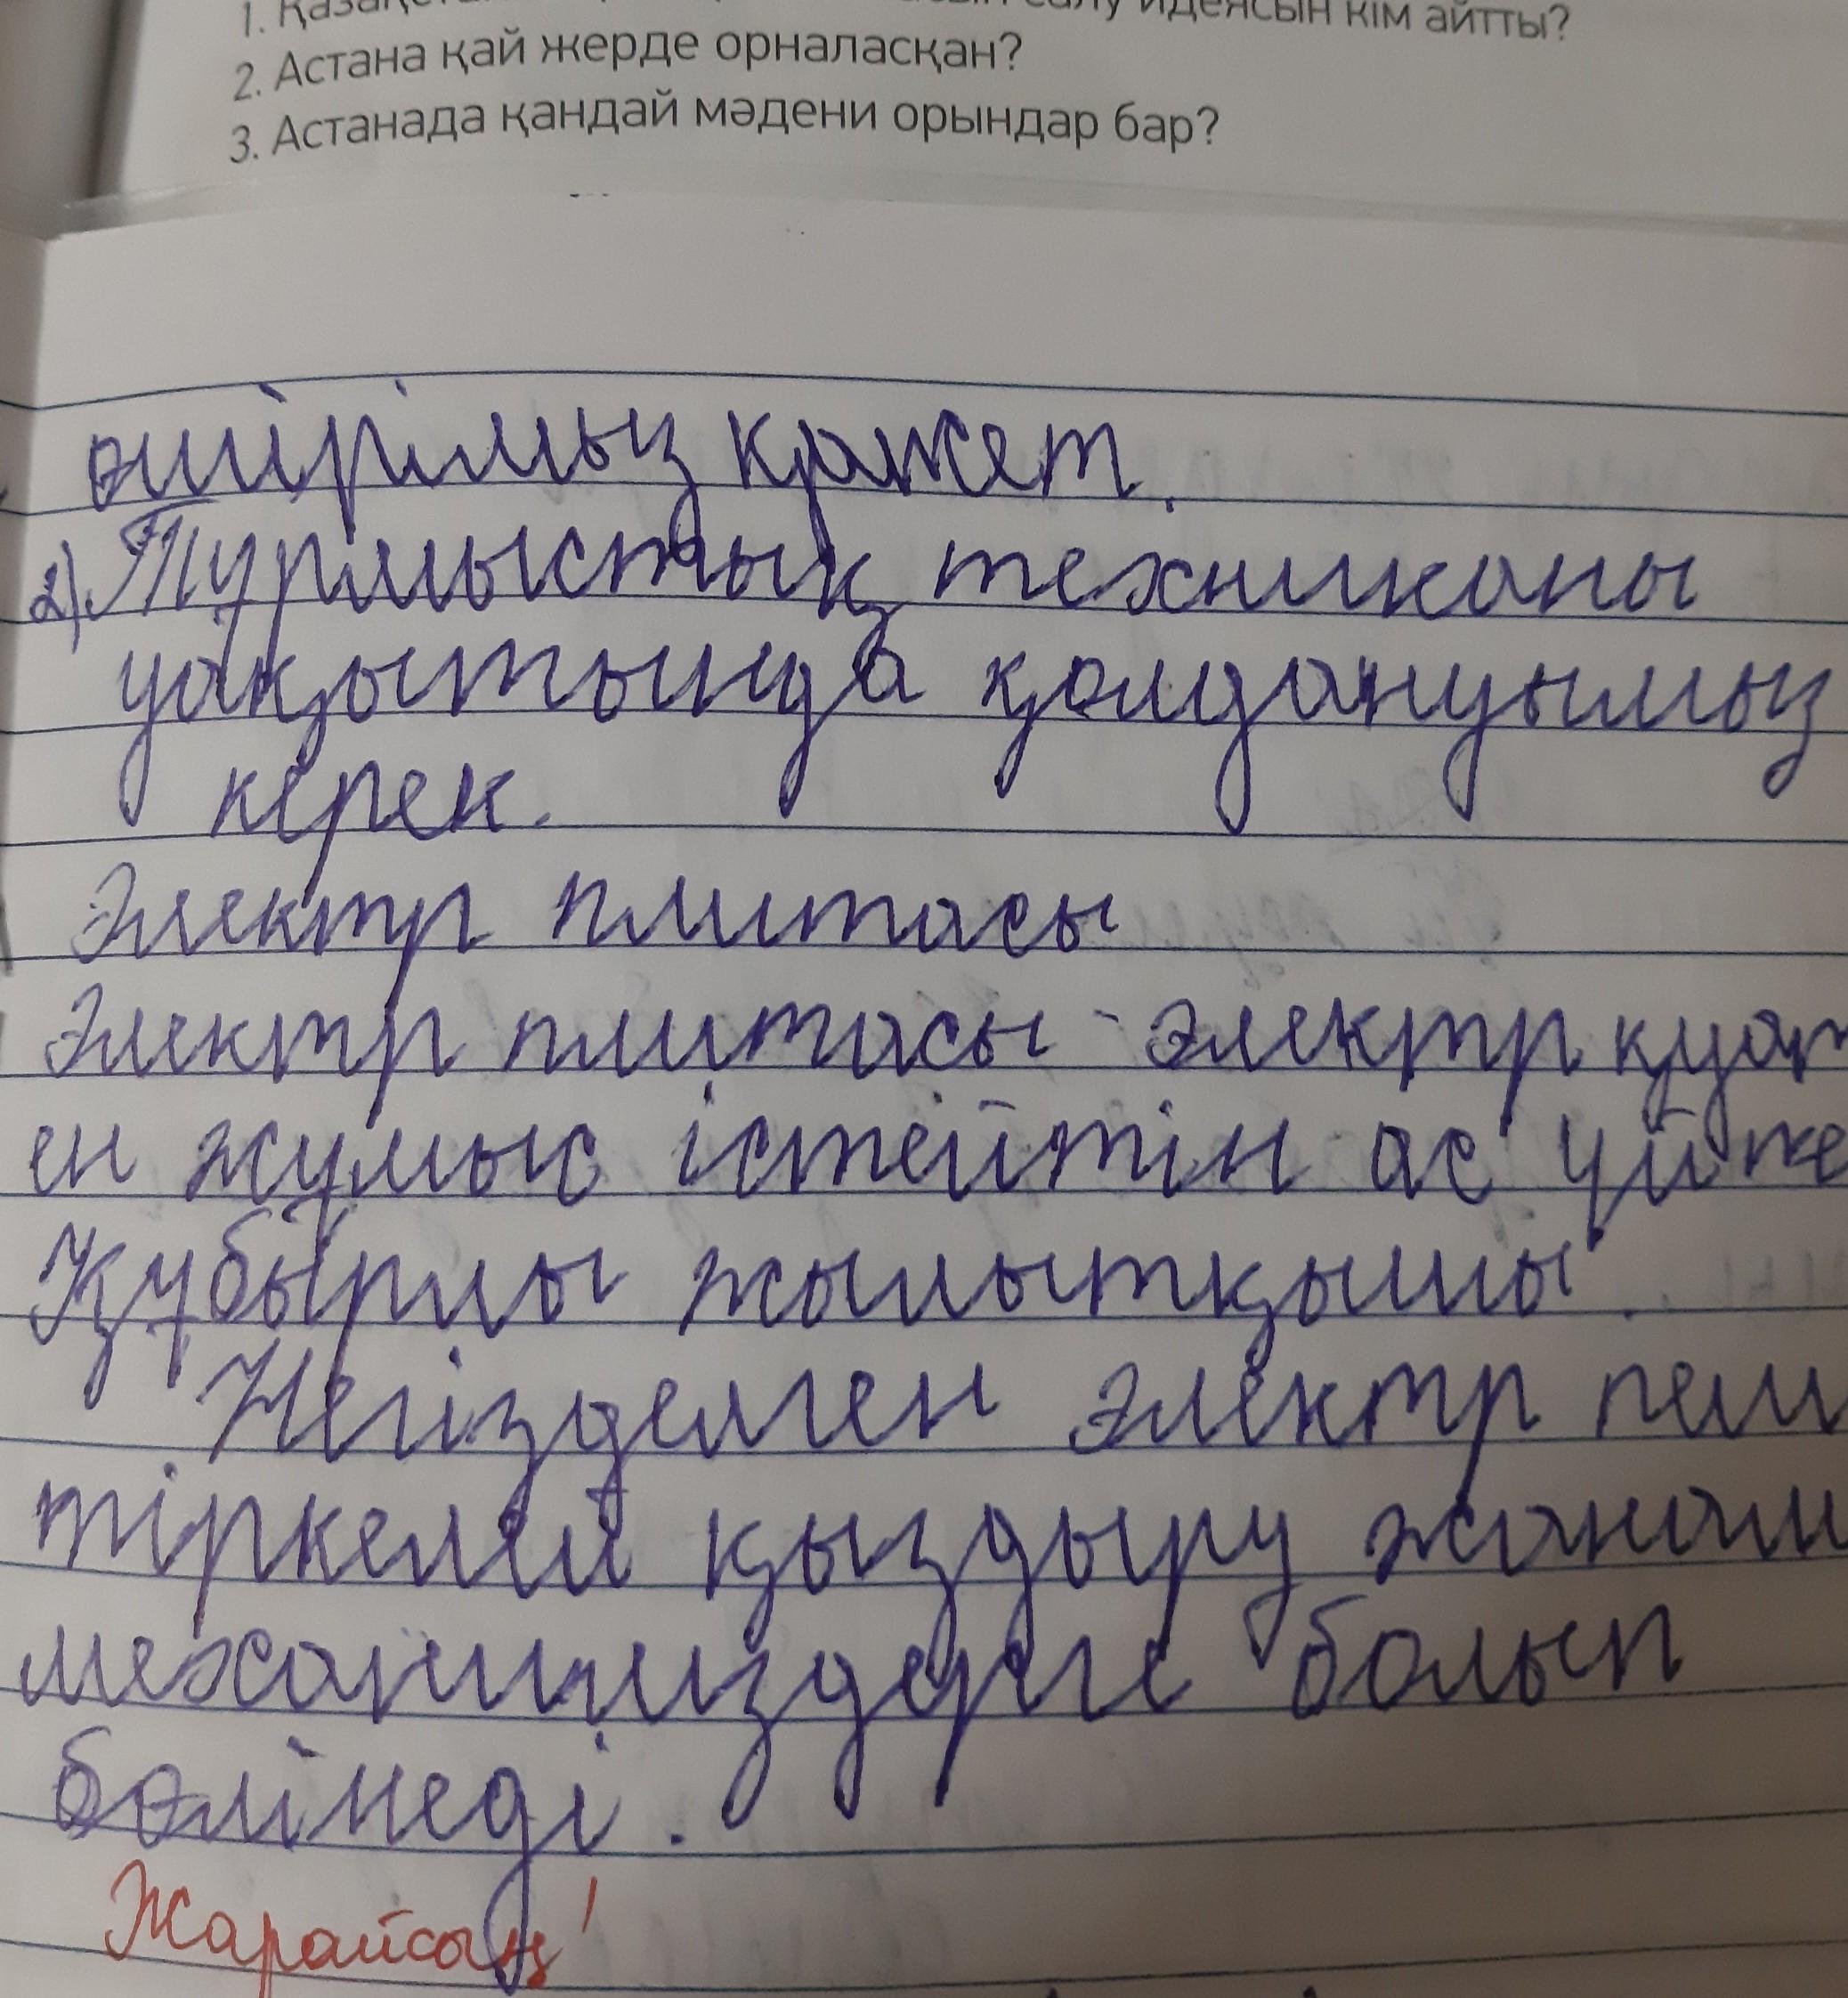 1. Қазақстан салу идеясын кім айтты?
2. Астана қай жерде орналасқан?
3. Астанада қандай мәдени орындар бар?
өшірімыз қажет.
2) Тұрмыстық техниканы
уақытында қолдануымыз
керек.
Электр плитасы
Электр плитасы - электр қуат
ен жұмыс істейтін ас үй пе
Құбырлы жылытқышы.
Негізделген электр пеш
тіркелей қыздыру жанам
механиздерге болып
бөлінеді.
Жарайсың!